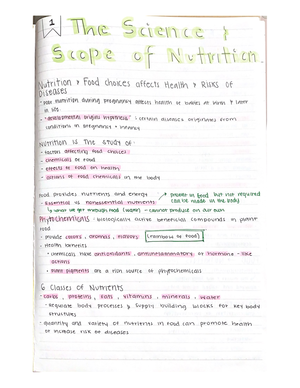 1
The Science &
Scope of Nutrition
Nutrition & Food choices affects Health & Risks of
Diseases
• poor nutrition during pregnancy affects health of babies at birth & later
in life
• "developmental origins hypothesis": certain diseases originates from
conditions in pregnancy + infancy
Nutrition is the study of:
• factors affecting food choices
• chemicals of food
• effects of food on health
• actions of food chemicals in the body
Food provides nutrients and energy
present in food but not required
can be made in the body
• Essential vs nonessential nutrients
what we get through food (water) - cannot produce on our own
Phytochemicals - biologically active beneficial compounds in plant
food
• provide colors, aromas, flavors (rainbow of food)
• Health benefits
• chemicals have antioxidants, antiinflammatory or hormone-like
actions
• Plant pigments are a rich source of phytochemicals
6 Classes of Nutrients
• carbs, proteins, fats, vitamins, minerals, water
• Regulate body processes & supply building blocks for key body
structures
• quantity and variety of nutrients in food can promote health
or increase risk of diseases